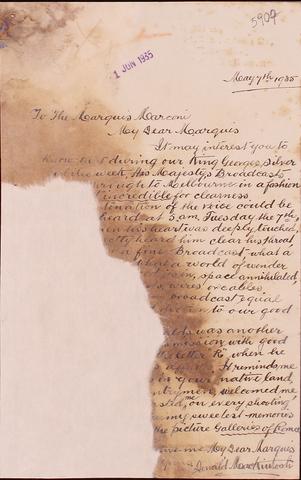 5907
1 JUN 1935
May 7th 1935
To The Marquis Marconi
My Dear Marquis
It may interest you to
during our King Georges, Silver
week, His Majesty's Broadcasts
to Melbourne in a fashion
incredible for clearness
of the voice could be
heard, at 5 am, Tuesday the 7th,
his heart was deeply touched,
heard him clear his throat,
a fine Broadcast - what a
what a world of wonder
space annihilated,
wires or cables,
broadcast equal
to our good
was another
with good
letter R, when he
It reminds me
in your native land,
welcomed me
on every shooting
my sweetest memories
the picture Galleries of Rome
me My Dear Marquis
Donald Mackintosh